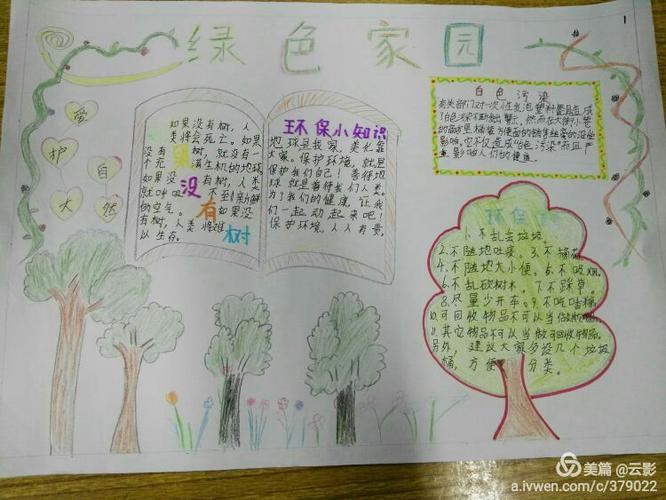 1
绿色家园
爱
护
自
大
然
如果没有树，人
类将会死亡。如果
没有树，就没有一
个充满生机的地球。
如果没有树，人类
就呼吸不到新鲜
的空气。如果没
有树，人类将难
以生存。
果
没
有
树
环保小知识
地球是我家，美化靠
大家。保护环境，就是
保护我们自己！善待地
球就是善待我们人类。
为了我们的健康，让我
们一起动起来吧！
保护环境，人人有责，
白色污染
有关部门对一次性发泡塑料餐具造成
白色污染不断提出警示，然而在大陆小卷
影响，它不仅造成"白色污染"而且严
重影响人们的健康。
环保
1.不乱丢垃圾。
2.不随地吐痰。3.不摘花。
4.不随地大小便。5.不吸烟。
6.不乱砍树木。7.不踩草。
8.尽量少开车。9.不吃口香糖
10.可回收物品不可以当做
11.其它物品不可以当做可回收物品。
另外，建议大家多设几个垃圾
桶，方便分类。
美篇 @云影
a.ivwen.com/c/379022